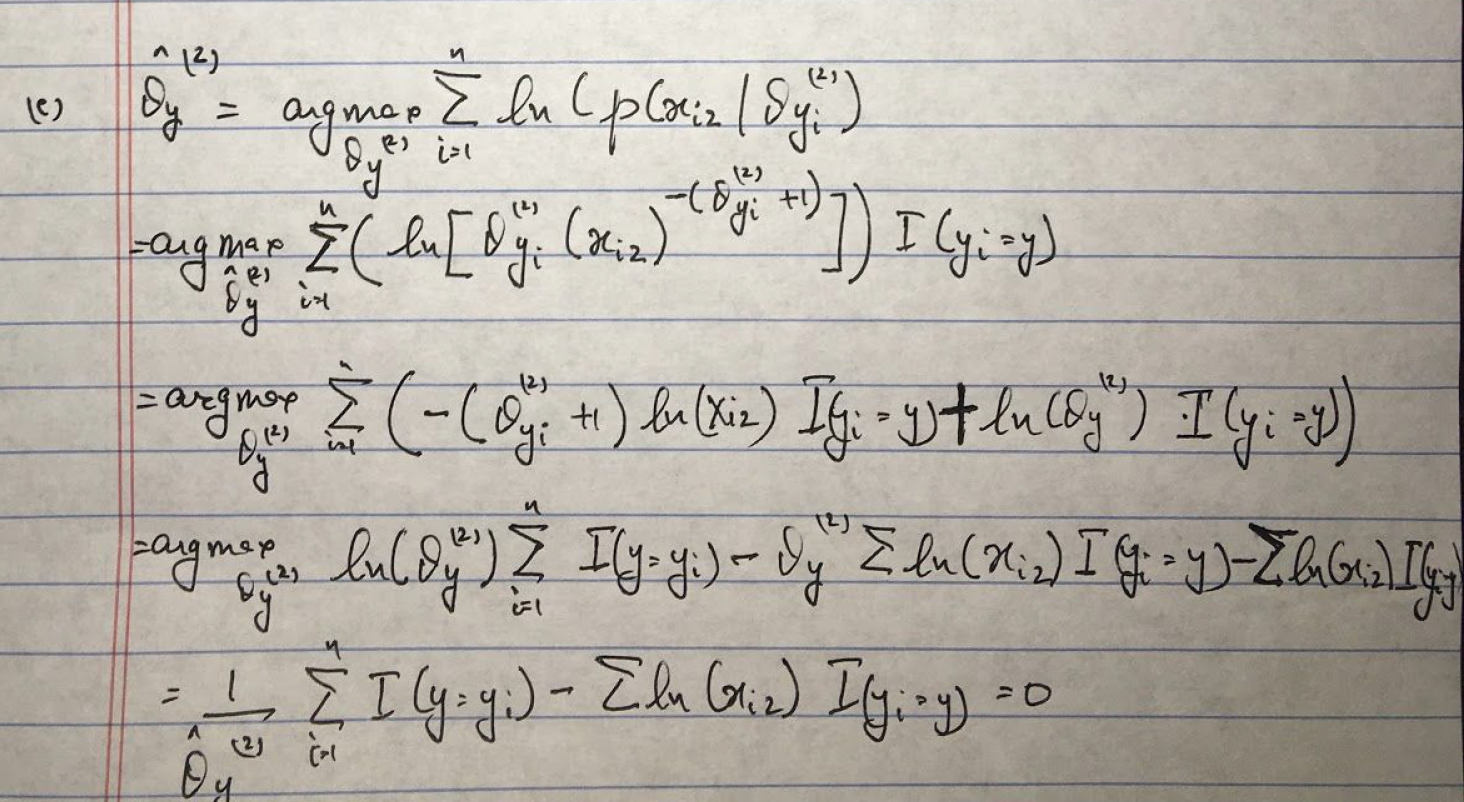 (c) θ̂_y^(2) = argmax_{θ_y^(2)} Σ_{i=1}^n ln (p(x_{i2} | θ_{y_i}^(2))
= argmax_{θ̂_y^(2)} Σ_{i=1}^n ( ln[ θ_{y_i}^(2) (x_{i2})^{-(θ_{y_i}^(2) +1)} ] ) I (y_i = y)
= argmax_{θ_y^(2)} Σ_{i=1}^n ( -(θ_{y_i}^(2) +1) ln(x_{i2}) I(y_i = y) + ln(θ_y^(2)) · I (y_i = y))
= argmax_{θ_y^(2)} ln(θ_y^(2)) Σ_{i=1}^n I(y = y_i) - θ_y^(2) Σ ln(x_{i2}) I (y_i = y) - Σ ln(x_{i2}) I(y_i=y)
= 1/θ̂_y^(2) Σ_{i=1}^n I (y = y_i) - Σ ln (x_{i2}) I(y_i = y) = 0